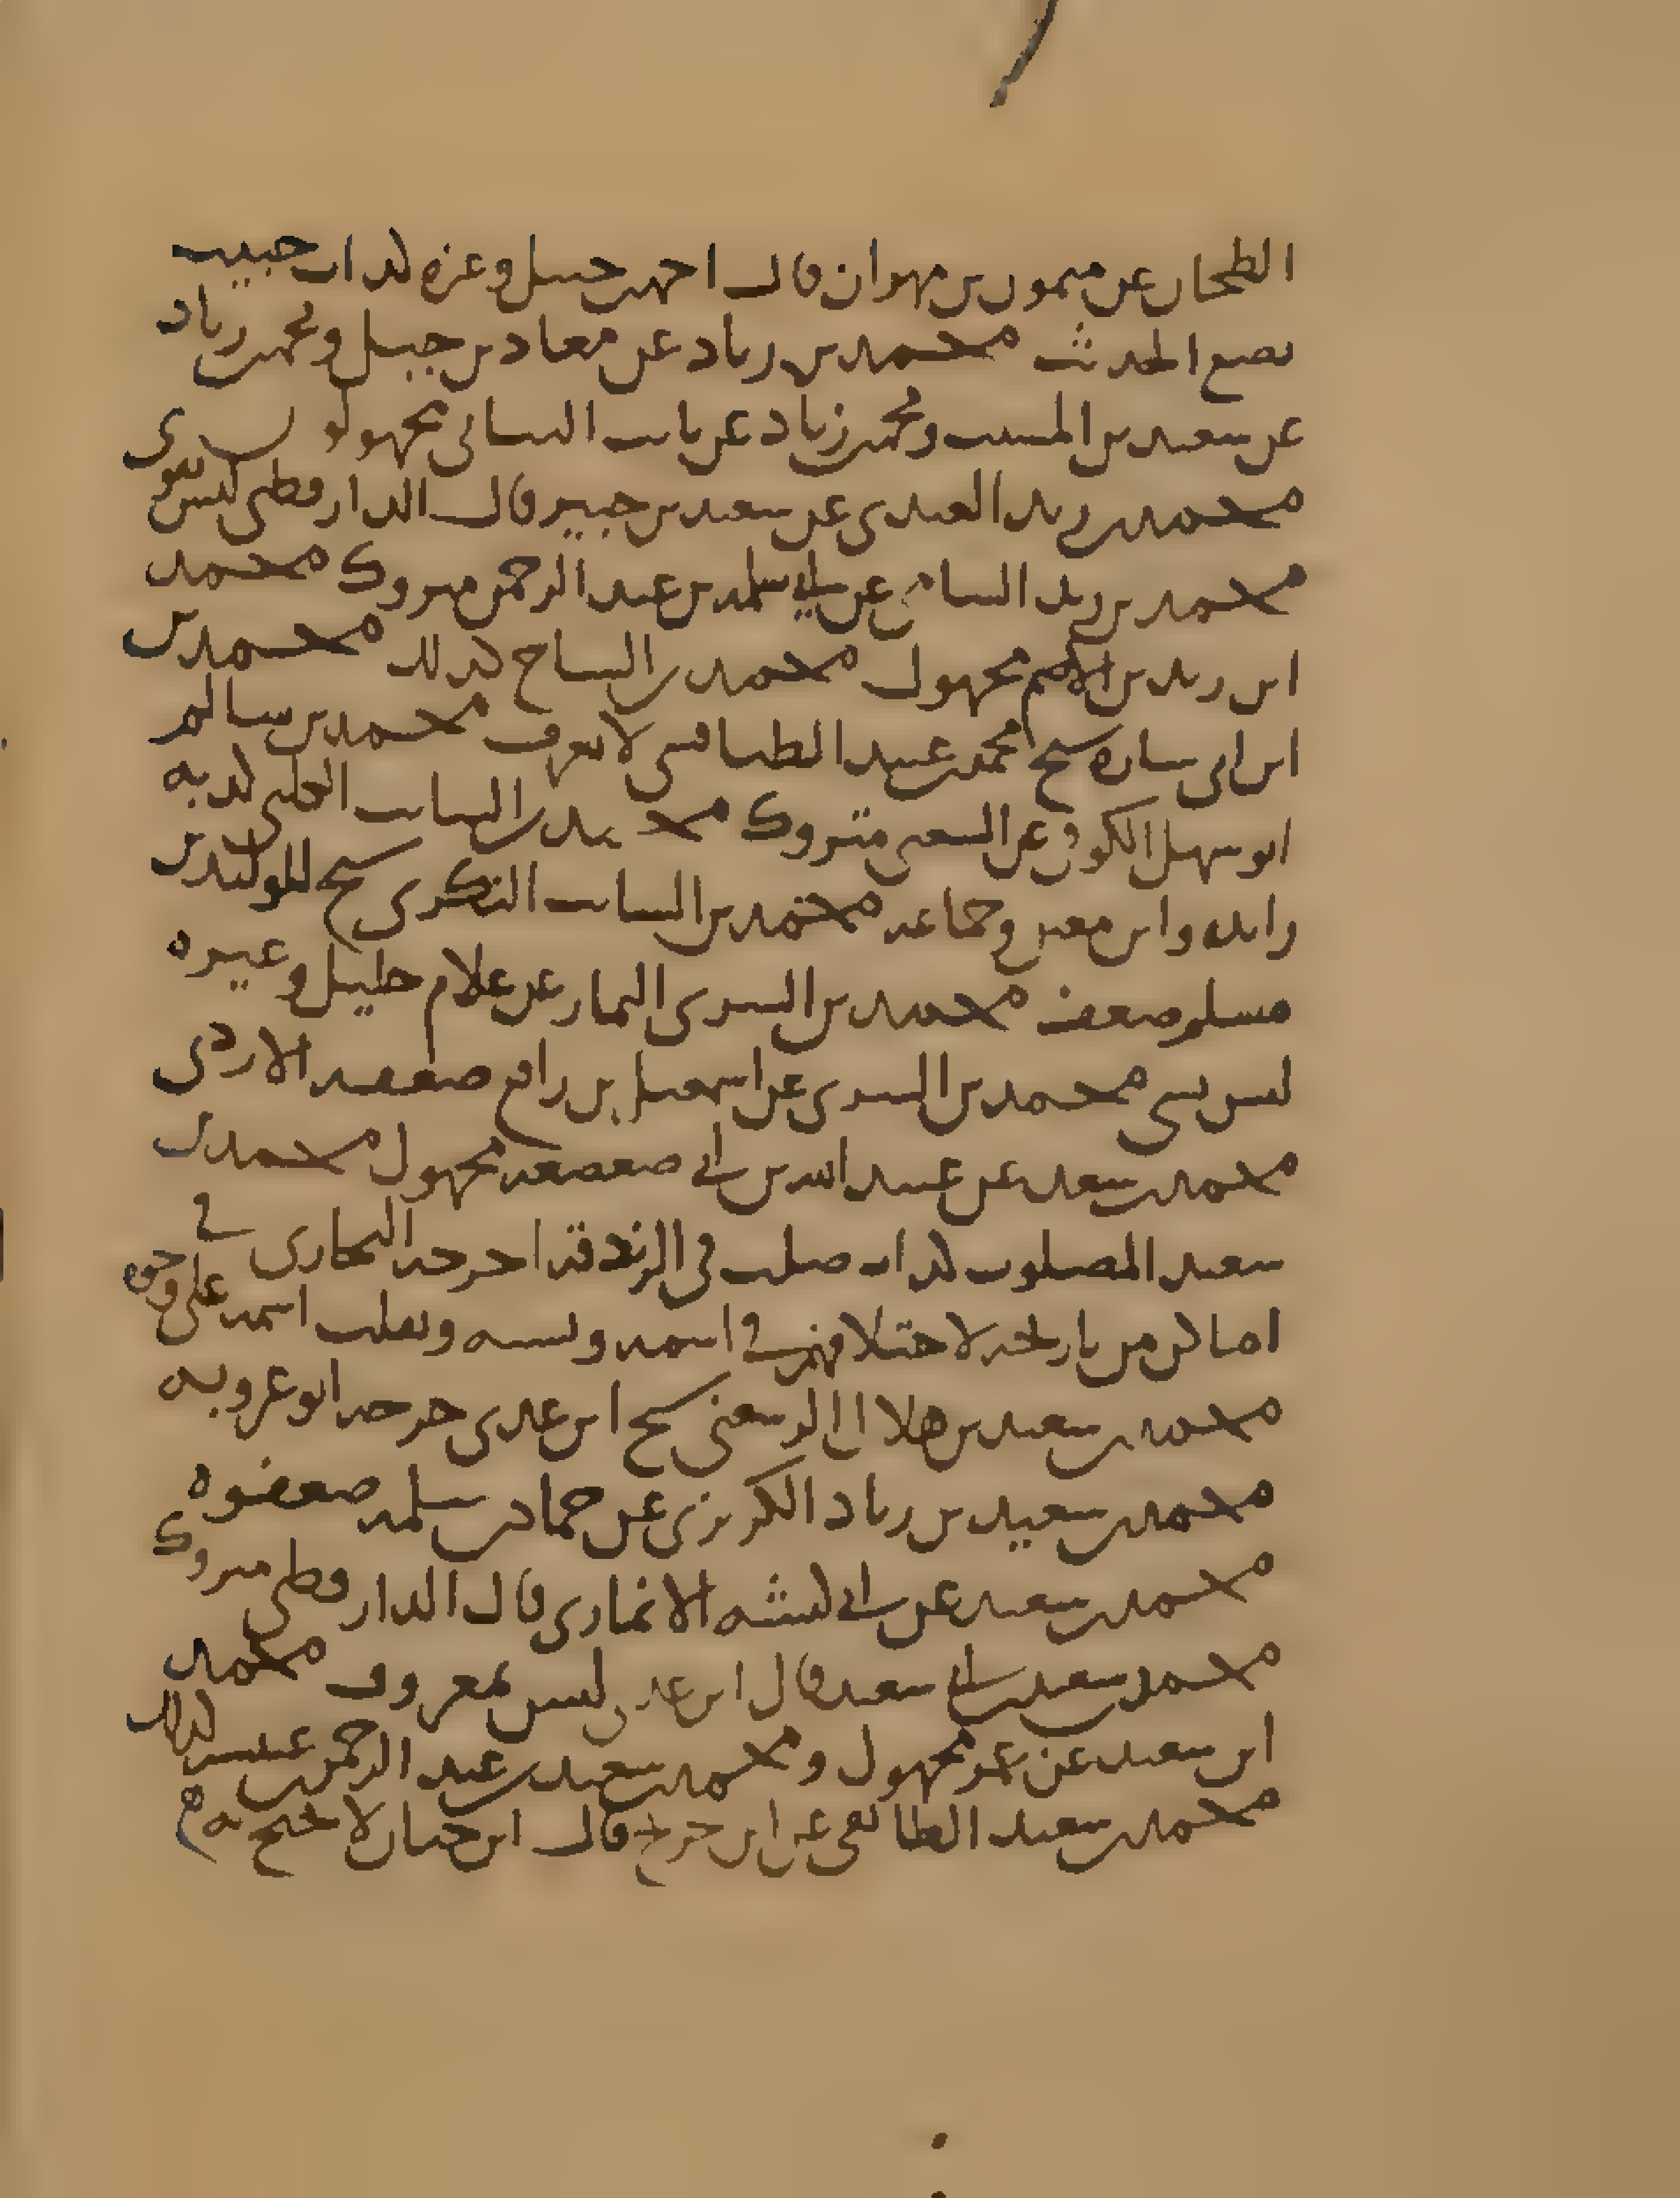 الطحان عن ميمون بن مهران قال احمد بن حنبل وغيره كذاب خبيث
يضع الحديث محمد بن زياد عن معاذ بن جبل ومحمد بن زياد
عن سعيد بن المسيب ومحمد بن زياد عن ثابت البناني مجهولون
محمد بن زيد العبدي عن سعيد بن جبير قال الدارقطني ليس بقوي
محمد بن زيد الشامي عن ابي سلمة بن عبد الرحمن متروك محمد
ابن زيد بن الاصم مجهول محمد بن الساج كذلك محمد بن
ابن ابي سارة شيخ لمحمد بن عبيد الطنافسي لا يعرف محمد بن سالم
ابو سهل الكوفي عن الشعبي متروك محمد بن السائب الكلبي كذبه
زائدة وابن معين وجماعة محمد بن السائب النكري شيخ للوليد بن
مسلم ضعف محمد بن السري التمار عن غلام خليل وغيره
ليس بشي محمد بن السري عن اسمعيل بن رافع ضعفه الازدي
محمد بن سعد عن عبد الله بن ابي صعصعة مجهول محمد بن
سعيد المصلوب كذاب صلب في الزندقة اخرجه البخاري في
اماكن من تاريخه لاختلافهم في اسمه ونسبه وتقلب اسمه على وجوه
محمد بن سعيد بن هلال الرسعني شيخ ابن عدي خرجه ابو عروبة
محمد بن سعيد بن زياد الكريزي عن حماد بن سلمة ضعفوه
محمد بن سعيد عن ابي كبشة الانماري قال الدارقطني متروك
محمد بن سعيد بن ابي سعيد قال ابن عدي ليس بمعروف محمد
ابن سعيد عن عمر مجهول ومحمد بن سعيد بن عبد الرحمن بن عنبسة كذلك
محمد بن سعيد الطائفي عن ابن جريج قال ابن حبان لا يحتج به